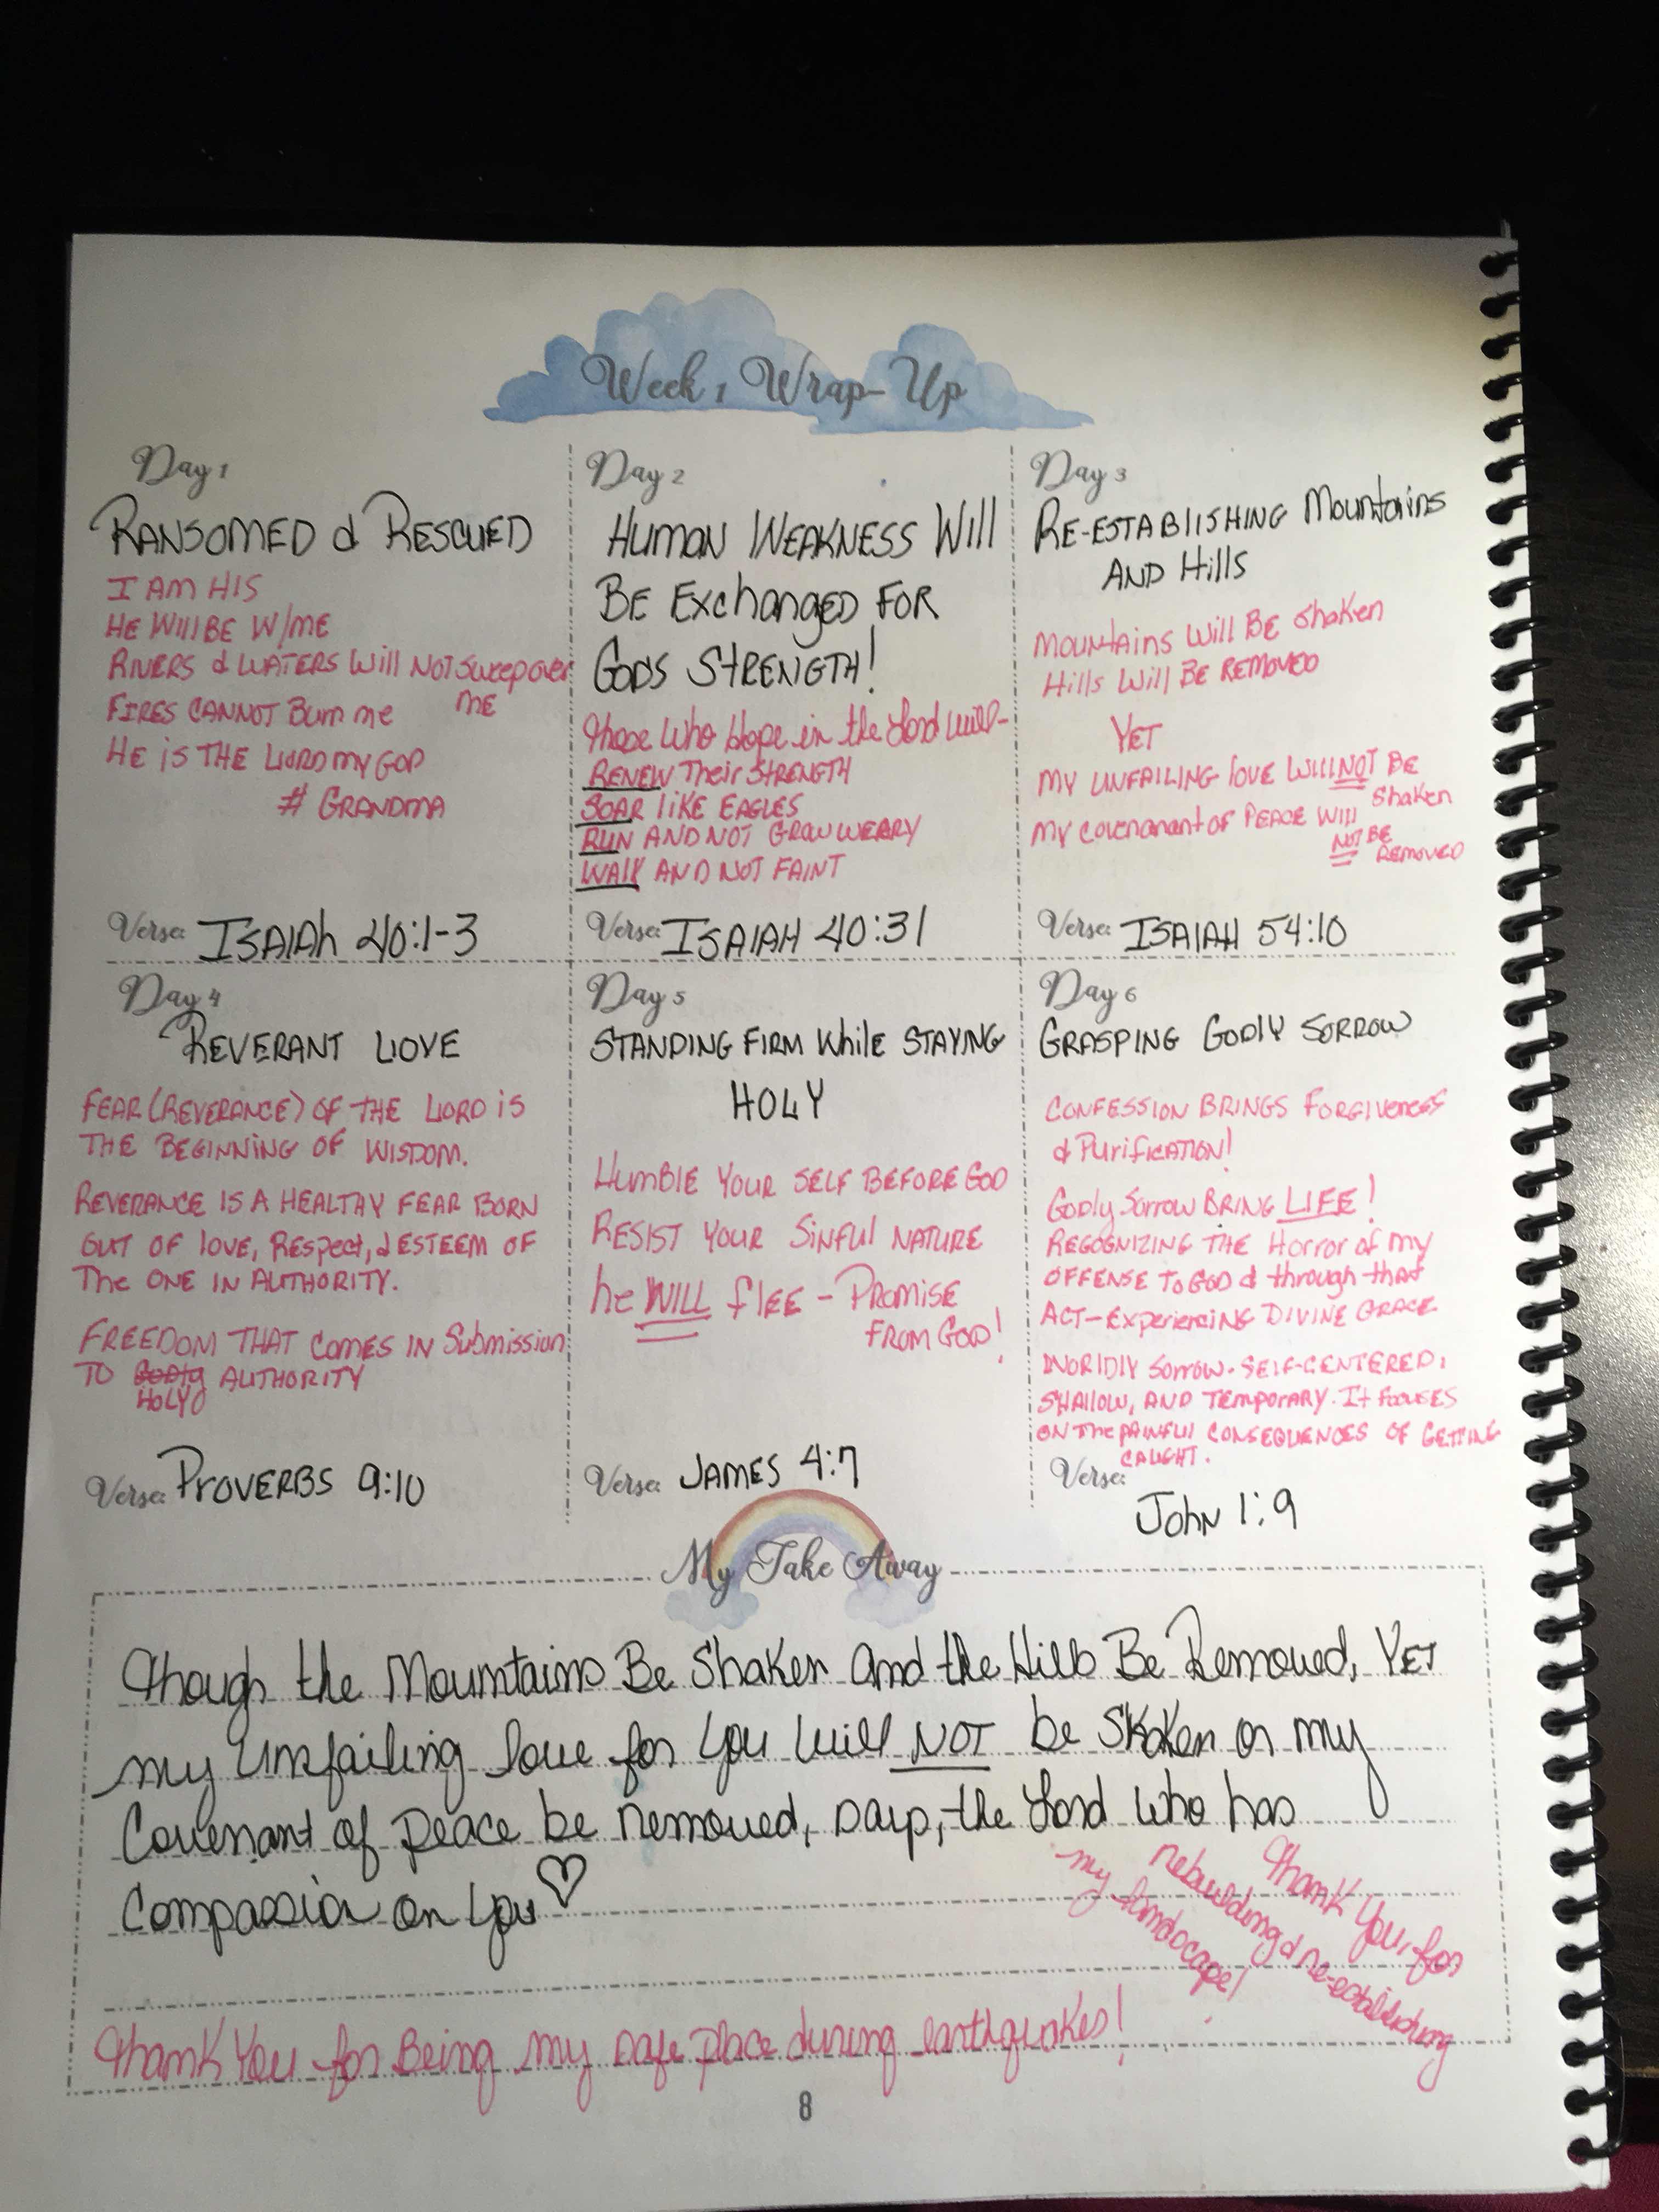 Week 1 Wrap-Up
Day 1
RANSOMED & RESCUED
I AM HIS
HE WILL BE W/ME
RIVERS & WATERS Will NOT Sweep over
ME
FIRES CANNOT Burn me
HE is THE LORD my GOD
# GRANDMA
Verse: ISAIAh 40:1-3
Day 2
HUMAN WEAKNESS Will
BE Exchanged FOR
GODS STRENGTH!
Those Who Hope in the Lord will-
RENEW Their STRENGTH
SOAR like EAGLES
RUN AND NOT GROW WEARY
WALK AND NOT FAINT
Verse: ISAIAH 40:31
Day 3
RE-ESTABLISHING Mountains
AND Hills
Mountains Will BE Shaken
Hills Will BE REMOVED
YET
MY UNFAILING love WILL NOT BE
Shaken
MY covenanant OF PEACE Will
NOT BE
REMOVED
Verse: ISAIAH 54:10
Day 4
REVERANT LOVE
FEAR (REVERANCE) OF THE LORD is
THE BEGINNING OF WISDOM.
REVERANCE IS A HEALTHY FEAR BORN
OUT OF love, Respect, & ESTEEM OF
The ONE IN AUTHORITY.
FREEDOM THAT Comes IN Submission
TO Godly AUTHORITY
HOLY
Verse: PROVERBS 9:10
Day 5
STANDING FIRM While STAYING
HOLY
HUMBLE YOUR SELF BEFORE GOD
RESIST YOUR SINFUL NATURE
he WILL flEE - PROMISE
FROM GOD!
Verse: JAMES 4:7
Day 6
GRASPING GODLY SORROW
CONFESSION BRINGS FORGIVENESS
& PURIFICATION!
Godly Sorrow BRING LIFE!
REGOGNIZING THE Horror of my
OFFENSE TO GOD & through that
ACT- Experiencing DIVINE GRACE
WORIDLY SORROW. SELF-CENTERED,
SHALLOW, AND TEMPORARY. It FOCUSES
ON The PAINFUL CONSEQUENCES OF GETTING
CAUGHT.
Verse:
John 1:9
My Take Away
Though the Mountains Be Shaken and the Hills Be Removed, YET
my Unfailing love for You will NOT be Shaken or my
Covenant of peace be removed, says, the Lord who has
Compassion on You ♡
Thank You for
rebuilding & re-establishing
my landscape!
Thank You for Being my safe place during earthquakes!
8